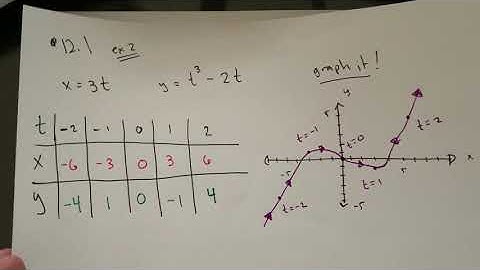 12.1 ex 2
x = 3t y = t³ - 2t
graph it!
t -2 -1 0 1 2
x -6 -3 0 3 6
y -4 1 0 -1 4
y
5
t=-1
t=0
t=2
x
-5
5
t=1
t=-2
-5